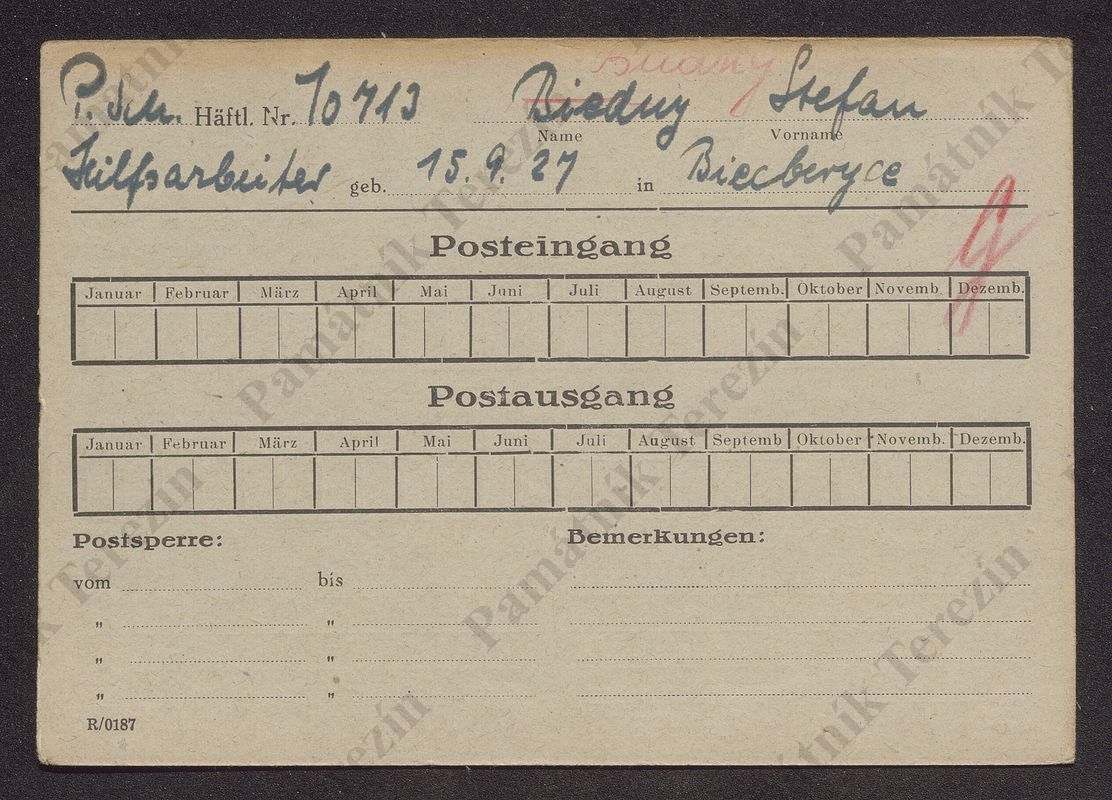 Budny
P. Sch. Häftl. Nr. 10713 Biedny Stefan
Name Vorname
Hilfsarbeiter geb. 15. 9. 27 in Biecberyce
Posteingang
Januar Februar März April Mai Juni Juli August Septemb. Oktober Novemb. Dezemb.
Postausgang
Januar Februar März April Mai Juni Juli August Septemb Oktober Novemb. Dezemb.
Postsperre: Bemerkungen:
vom bis
" "
" "
" "
R/0187
Památník Terezín